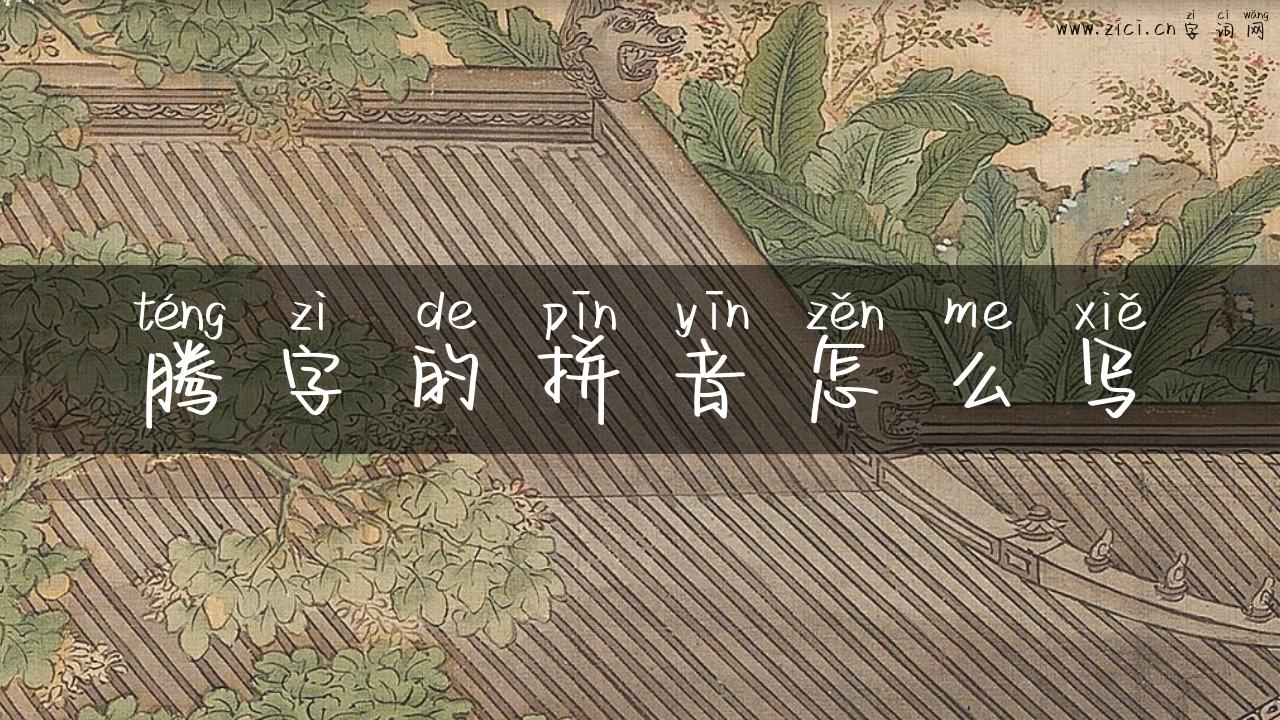 zì cí wǎng
www.zici.cn 字词网
téng zì de pīn yīn zěn me xiě
腾字的拼音怎么写